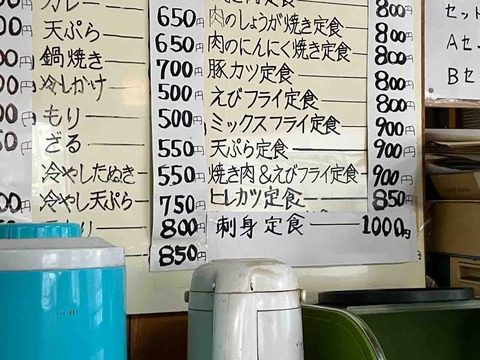 カレー 650円
天ぷら 650円
鍋焼き 700円
冷しかけ 500円
もり 500円
ざる 550円
冷やしたぬき 550円
冷やし天ぷら 750円
800円
850円
800円
肉のしょうが焼き定食 800円
肉のにんにく焼き定食 800円
豚カツ定食 800円
えびフライ定食 800円
ミックスフライ定食 900円
天ぷら定食 900円
焼き肉&えびフライ定食 900円
ヒレカツ定食 850円
刺身定食 1000円
セット
Aセ
Bセ